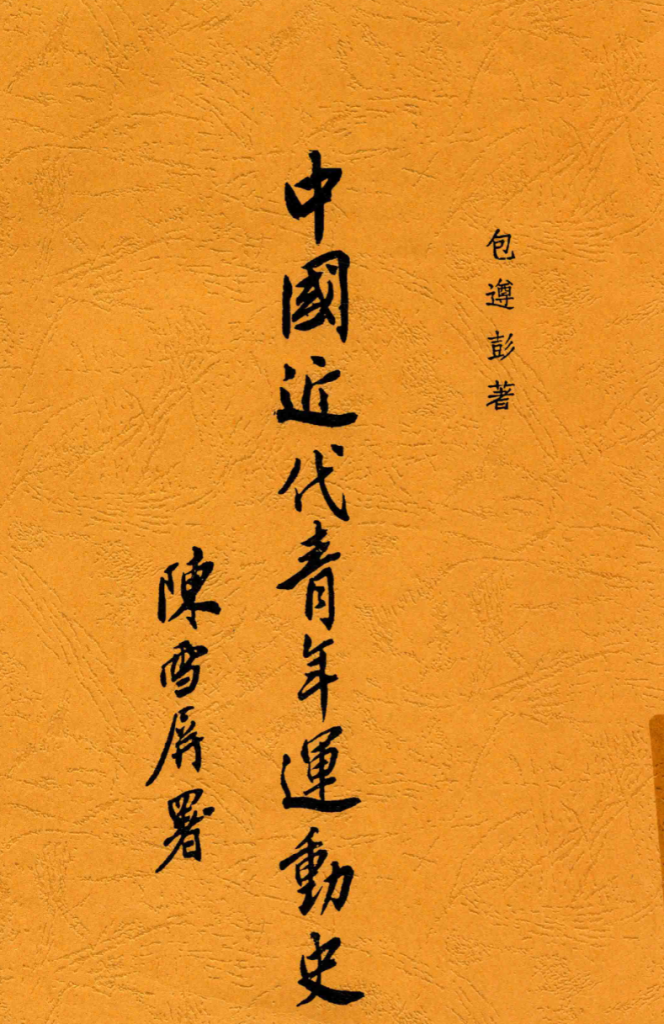 包遵彭著
中國近代青年運動史
陳雪屏署